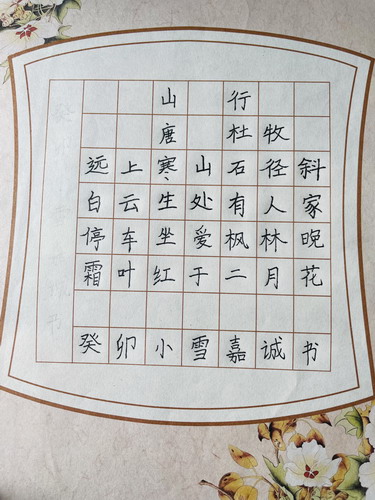 山行
唐 杜牧
远上寒山石径斜
白云生处有人家
停车坐爱枫林晚
霜叶红于二月花
癸卯小雪嘉诚书